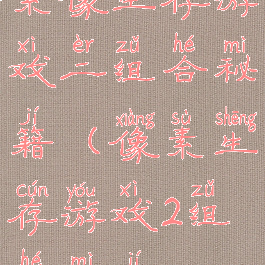 生存游
xì èr zǔ hé mì
戏二组合秘
jí xiàng sù shēng
籍(像素生
cún yóu xì zǔ
存游戏2组
hé mì jí